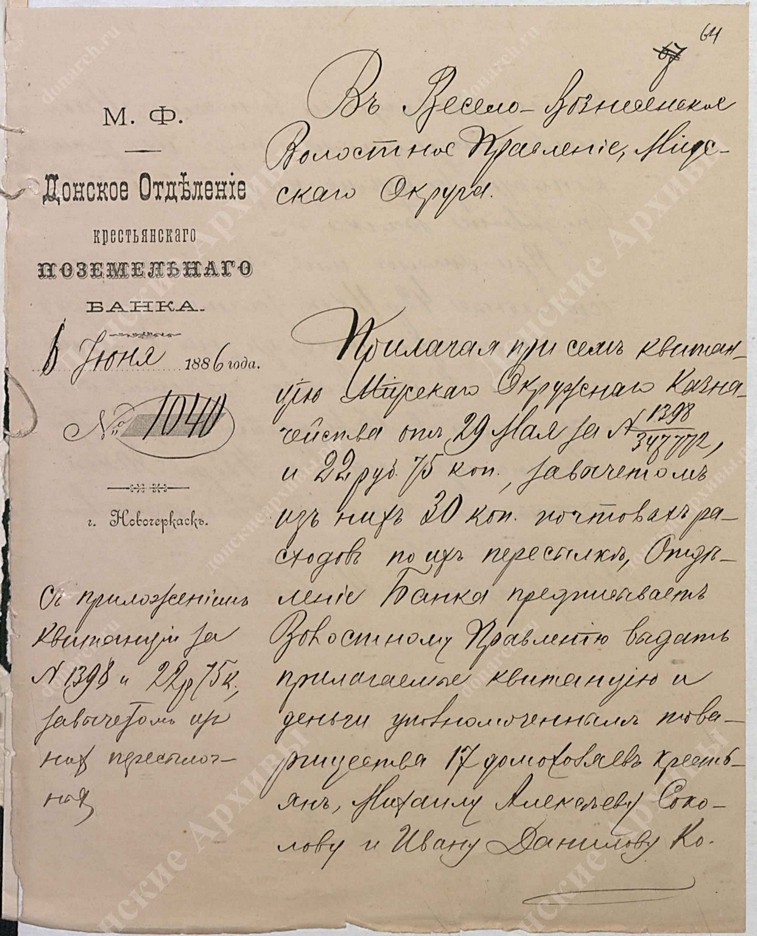 64
М. Ф.
Донское Отдѣленіе
крестьянскаго
ПОЗЕМЕЛЬНАГО
БАНКА.
6 Іюня 1886 года.
№ 1040
г. Новочеркаскъ.
Съ приложеніемъ
квитанціи за
№ 1398 и 22 р 75 к.,
за вычетомъ из
них пересылоч-
ных
Въ Весело-Вознесенское
Волостное Правленіе, Міус-
скаго Округа.
Прилагая при семъ квитан-
цію Міусскаго Окружнаго Казна-
чейства отъ 29 Мая за № 1398/347772,
и 22 руб. 75 коп., за вычетомъ
изъ нихъ 30 коп. почтовыхъ ра-
сходовъ по ихъ пересылкѣ, Отдѣ-
леніе Банка предписываетъ
Волостному Правленію выдать
прилагаемые квитанцію и
деньги уполномоченнымъ това-
рищества 17 домохозяевъ кресть-
янъ, Михаилу Алексѣеву Соко-
лову и Ивану Данилову Ко-